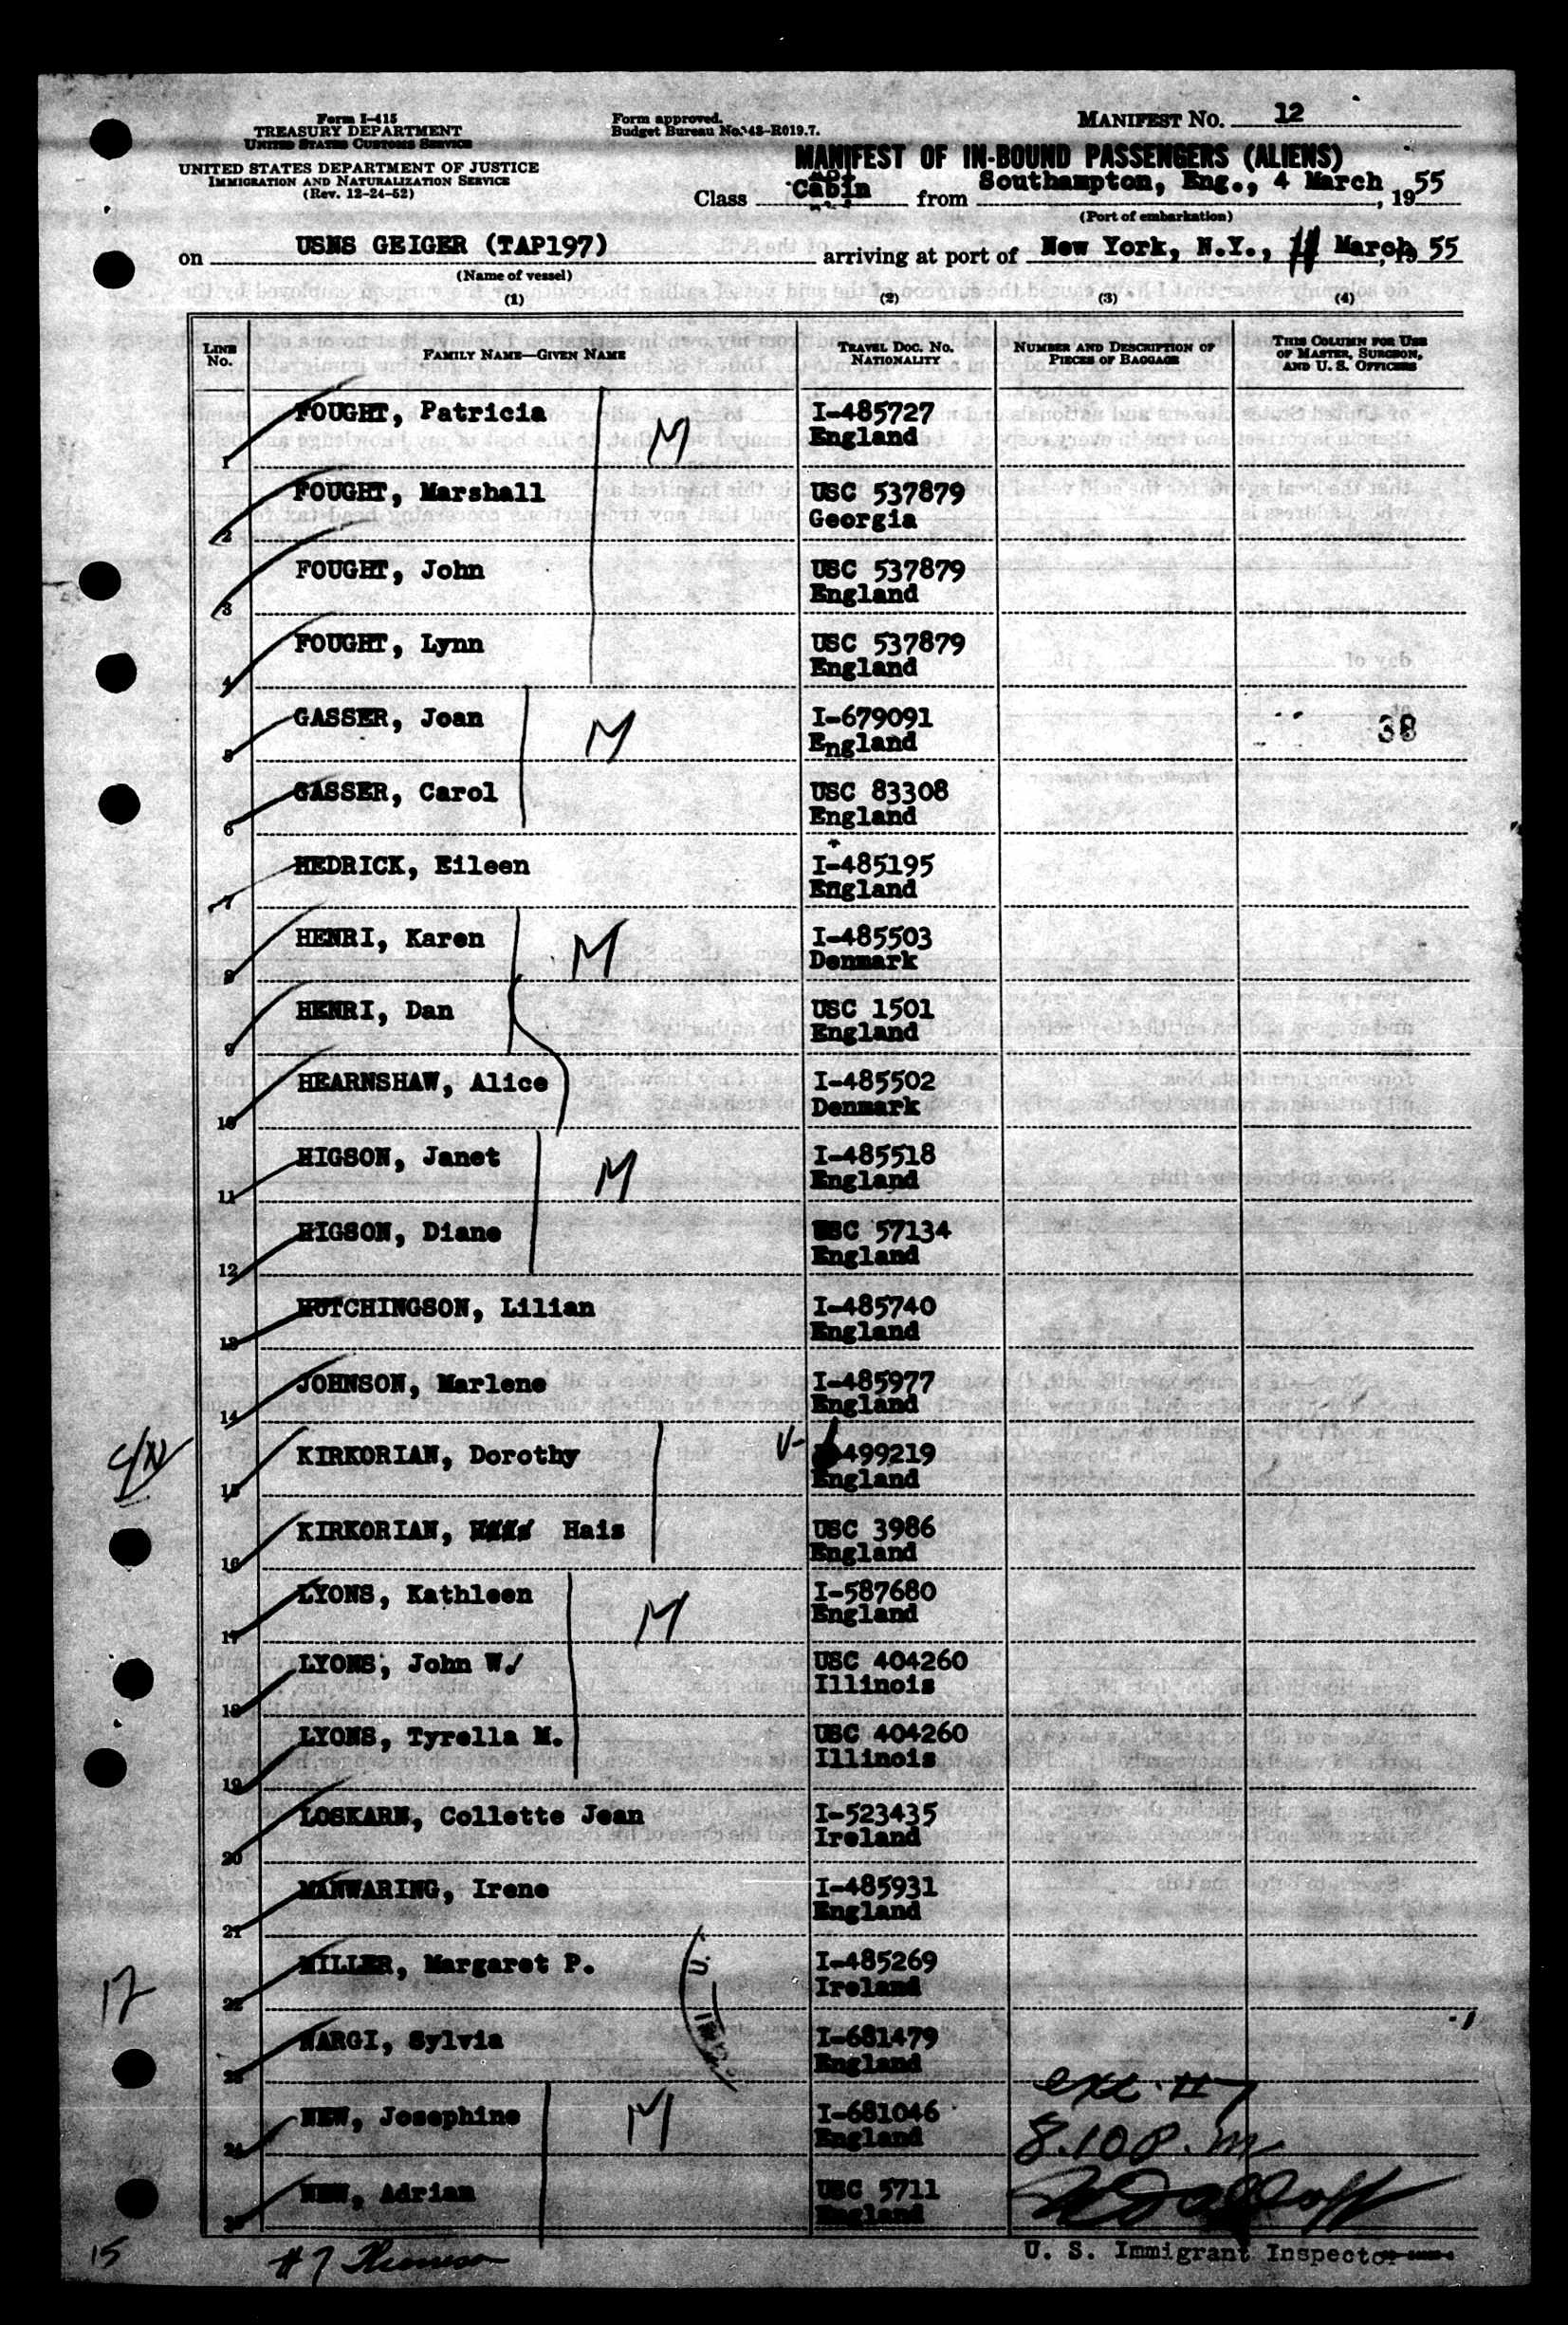 Form I-415
TREASURY DEPARTMENT
UNITED STATES CUSTOMS SERVICE
UNITED STATES DEPARTMENT OF JUSTICE
IMMIGRATION AND NATURALIZATION SERVICE
(Rev. 12-24-52)
Form approved.
Budget Bureau No. 43-R019.7.
MANIFEST NO. 12
MANIFEST OF IN-BOUND PASSENGERS (ALIENS)
Class Cabin from Southampton, Eng., 4 March, 1955
(Port of embarkation)
on USNS GEIGER (TAP197) arriving at port of New York, N.Y., 11 March, 1955
(Name of vessel)
(1) (2) (3) (4)
LINE No. FAMILY NAME—GIVEN NAME TRAVEL DOC. NO. NATIONALITY NUMBER AND DESCRIPTION OF PIECES OF BAGGAGE THIS COLUMN FOR USE OF MASTER, SURGEON, AND U. S. OFFICERS
1 FOUGHT, Patricia M I-485727
England
2 FOUGHT, Marshall USC 537879
Georgia
3 FOUGHT, John USC 537879
England
4 FOUGHT, Lynn USC 537879
England
5 GASSER, Joan M I-679091 38
England
6 GASSER, Carol USC 83308
England
7 HEDRICK, Eileen I-485195
England
8 HENRI, Karen M I-485503
Denmark
9 HENRI, Dan USC 1501
England
10 HEARNSHAW, Alice I-485502
Denmark
11 HIGSON, Janet M I-485518
England
12 HIGSON, Diane USC 57134
England
13 HUTCHINGSON, Lilian I-485740
England
14 JOHNSON, Marlene I-485977
England
15 KIRKORIAN, Dorothy V- 499219
England
16 KIRKORIAN, Hais USC 3986
England
17 LYONS, Kathleen M I-587680
England
18 LYONS, John W. USC 404260
Illinois
19 LYONS, Tyrella M. USC 404260
Illinois
20 LOSKARN, Collette Jean I-523435
Ireland
21 MANWARING, Irene I-485931
England
22 MILLER, Margaret P. I-485269
Ireland
12
23 NARGI, Sylvia I-681479
England
24 NEW, Josephine M I-681046
England
8.10 P.m
25 NEW, Adrian USC 5711
England
U. S. Immigrant Inspector
15
#7